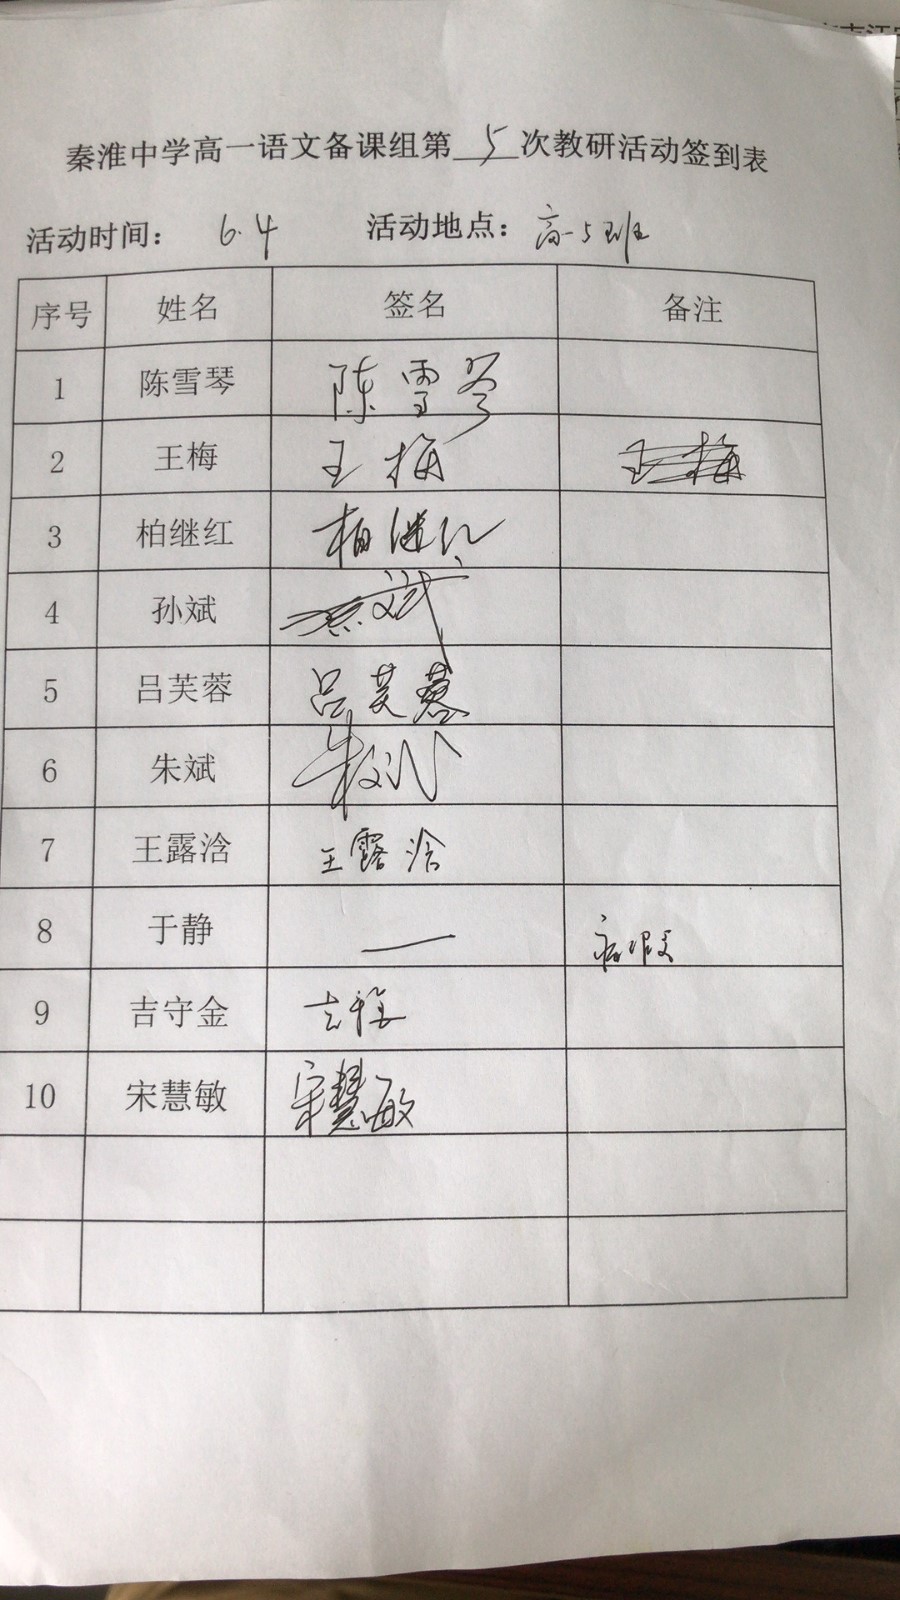 秦淮中学高一语文备课组第 5 次教研活动签到表
活动时间： 6.4 活动地点：高一5班
序号 姓名 签名 备注
1 陈雪琴 陈雪琴
2 王梅 王梅 王梅
3 柏继红 柏继红
4 孙斌 斌
5 吕芙蓉 吕芙蓉
6 朱斌 朱斌
7 王露浛 王露浛
8 于静 — 病假
9 吉守金 吉守金
10 宋慧敏 宋慧敏